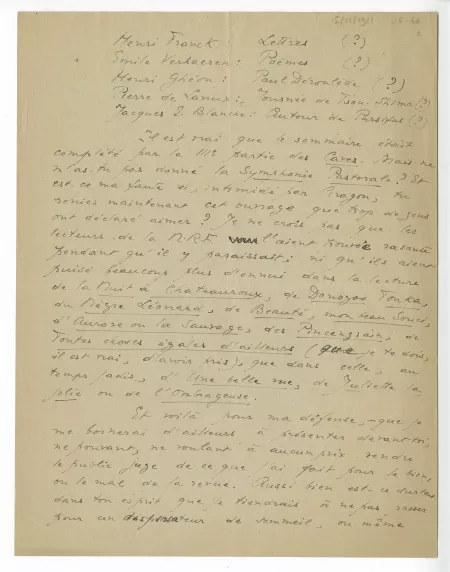 15/01/1921 05-60
Henri Franck : Lettres (?)
Emile Verhaeren : Poèmes (?)
Henri Ghéon : Paul Déroulède (?)
Pierre de Lanux : Journée de Tsou-Shima (?)
Jacques E. Blanche : Autour de Parsifal (?)
Il est vrai que le sommaire était
complété par la IIIe partie des Caves. Mais ne
m'as-tu pas donné la Symphonie Pastorale ? Et
est-ce ma faute si, intimidé par Aragon, tu
renies maintenant cet ouvrage que trop de gens
ont déclaré aimer ? Je ne crois pas que les
lecteurs de la N.R.F. l'aient trouvée rasante
pendant qu'il y paraissait ; ni qu'ils aient
puisé beaucoup plus d'ennui dans la lecture
de la Nuit à Chateauroux, de Donogoo Tonka,
du Nègre Léonard, de Beauté, mon beau souci,
d'Aurore ou la Sauvage, des Pincengrain, de
toutes choses égales d'ailleurs (que je te dois,
il est vrai, d'avoir pris), que dans celle, au
temps jadis, d'Une belle vue, de Juliette la
jolie ou de l'Ombrageuse.
Et voilà pour ma défense, - que je
me bornerai d'ailleurs à présenter devant toi,
ne pouvant, ne voulant à aucun prix rendre
le public juge de ce que j'ai fait pour le bien
ou le mal de la revue. Aussi bien est-ce surtout
dans ton esprit que je tiendrais à ne pas passer
pour un dispensateur de sommeil, ou même